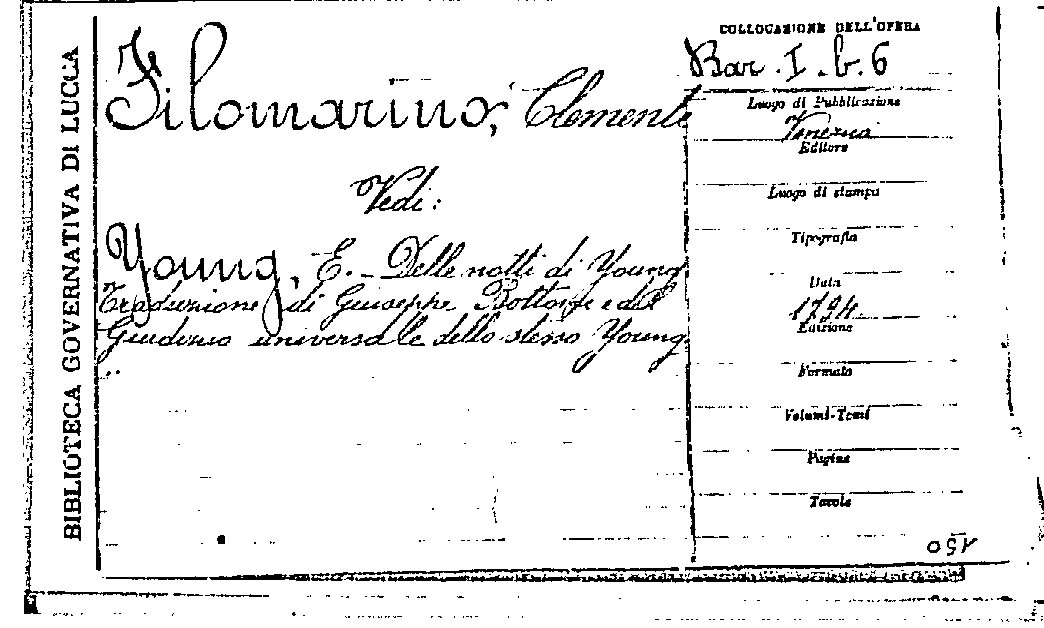 BIBLIOTECA GOVERNATIVA DI LUCCA
Filomarino, Clemente
Vedi:
Young, E. - Delle notti di Young
Traduzione di Giuseppe Bottoni e del
Giudizio universale dello stesso Young
..
COLLOCAZIONE DELL'OPERA
Bar. I. b. 6
Luogo di Pubblicazione
Venezia
Editore
Luogo di stampa
Tipografia
Data
1794
Edizione
Formato
Volumi-Tomi
Pagine
Tavole